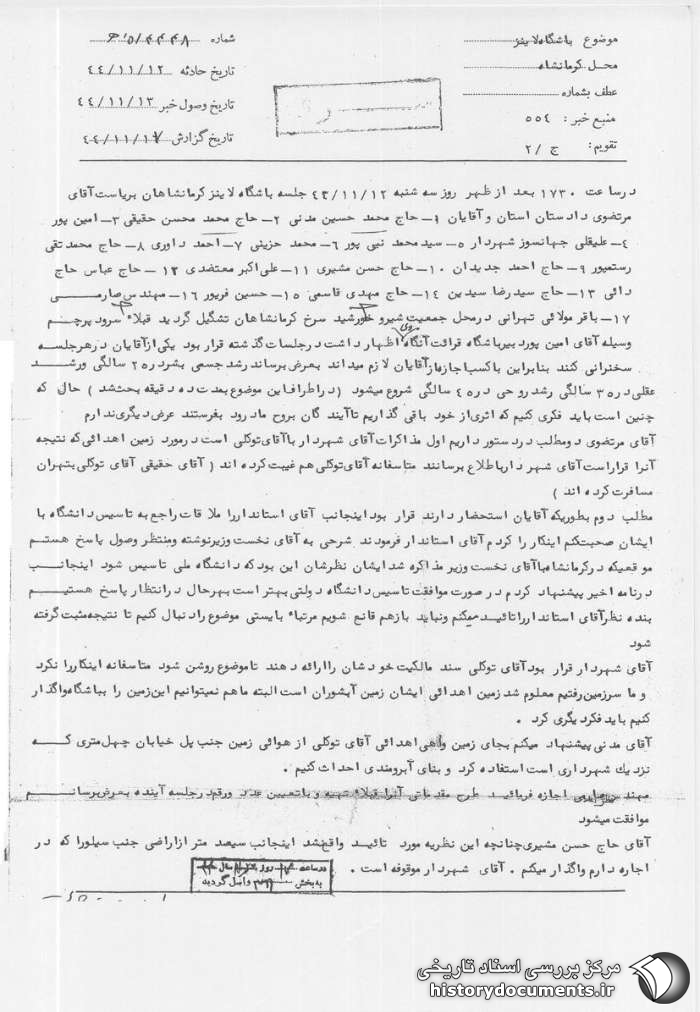 موضوع باشگاه لاینز
شماره ۵/۴۴۴۸
محل کرمانشاه
تاریخ حادثه ۴۴/۱۱/۱۲
عطف بشماره
تاریخ وصول خبر ۴۴/۱۱/۱۳
منبع خبر: ۵۵۴
تاریخ گزارش ۴۴/۱۱/۱۷
تقویم: ج /۲
درساعت ۱۷۳۰ بعد از ظهر روز سه شنبه ۴۴/۱۱/۱۲ جلسه باشگاه لاینز کرمانشاهان بریاست آقای
مرتضوی دادستان استان و آقایان ۱- حاج محمد حسین مدنی ۲- حاج محمد محسن حقیقی ۳- امین پور
۴- علیقلی جهانسوز شهردار ۵- سید محمد نبی پور ۶- محمد حزینی ۷- احمد داوری ۸- حاج محمد تقی
رستمپور ۹- حاج احمد جدیدان ۱۰- حاج حسن مشیری ۱۱- علی اکبر معتضدی ۱۲- حاج عباس حاج
دائی ۱۳- حاج سید رضا سیدین ۱۴- حاج مهدی قاسمی ۱۵- حسین فرپور ۱۶- مهندس صارمی
۱۷- باقر مولائی تهرانی درمحل جمعیت شیر و خورشید سرخ کرمانشاهان تشگیل گردید قبلاء سرود پرچم
وسیله آقای امین پور دبیر باشگاه قرائت آنگاه اظهار داشت در جلسات گذشته قرار بود یکی از آقایان در هر جلسه
سخنرانی کنند بنابراین باکسب اجازه از آقایان لازم میداند بعرض برساند رشد جسمی بشر در ۲۵ سالگی و رشد
عقلی در ۳۵ سالگی رشد روحی در ۴۵ سالگی شروع میشود (در اطراف این موضوع بمدت ده دقیقه بحث شد) حال که
چنین است باید فکری کنیم که اثری از خود باقی گذاریم تا آیندگان بروح ما درود بفرستند عرض دیگری ندارم
آقای مرتضوی دو مطلب در دستور داریم اول مذاکرات آقای شهردار با آقای توکلی است در مورد زمین اهدائی که نتیجه
آنرا قرار است آقای شهردار باطلاع برسانند متاسفانه آقای توکلی هم غیبت کرده اند (آقای حقیقی آقای توکلی بتهران
مسافرت کرده اند)
مطلب دوم بطوریکه آقایان استحضار دارند قرار بود اینجانب آقای استاندار را ملاقات راجع به تاسیس دانشگاه با
ایشان صحبت کنم اینکار را کردم آقای استاندار فرمودند شرحی به آقای نخست وزیر نوشته و منتظر وصول پاسخ هستم
موقعیکه در کرمانشاه با آقای نخست وزیر مذاکره شد ایشان نظرشان این بود که دانشگاه ملی تاسیس شود اینجانب
در نامه اخیر پیشنهاد کردم در صورت موافقت تاسیس دانشگاه دولتی بهتر است بهرحال در انتظار پاسخ هستیم
بنده نظر آقای استاندار را تائید میکنم و نباید بازهم قانع شویم مرتباء بایستی موضوع را دنبال کنیم تا نتیجه مثبت گرفته
شود
آقای شهردار قرار بود آقای توکلی سند مالکیت خودشان را ارائه دهند تا موضوع روشن شود متاسفانه اینکار را نکرد
و ما سر زمین رفتیم معلوم شد زمین اهدائی ایشان زمین آبشوران است البته ما هم نمیتوانیم این زمین را بباشگاه واگذار
کنیم باید فکر دیگری کرد .
آقای مدنی پیشنهاد میکنم بجای زمین واهی اهدائی آقای توکلی از هوائی زمین جنب پل خیابان چهل متری که
نزدیك شهرداری است استفاده کرد و بنای آبرومندی احداث کنیم .
مهندس صارمی اجازه فرمائید طرح مقدماتی آنرا قبلاء تهیه و باتعیین عدد و رقم در جلسه آینده بعرض برسانم
موافقت میشود
آقای حاج حسن مشیری چنانچه این نظریه مورد تائید واقع نشد اینجانب سیصد متر از اراضی جنب سیلو را که در
اجاره دارم واگذار میکنم . آقای شهردار موقوفه است .
در ساعت روز سال
به بخش واصل گردید
مرکز بررسی اسناد تاریخی
historydocuments.ir